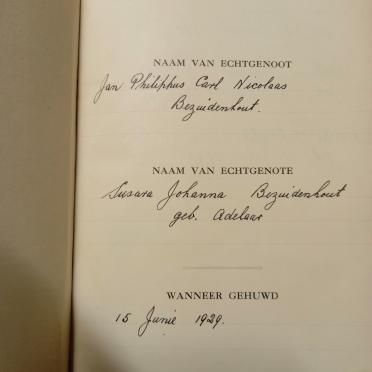 NAAM VAN ECHTGENOOT
Jan Philippus Carl Nicolaas
Bezuidenhout.
NAAM VAN ECHTGENOTE
Susara Johanna Bezuidenhout
geb. Adelaar
WANNEER GEHUWD
15 Junie 1929.